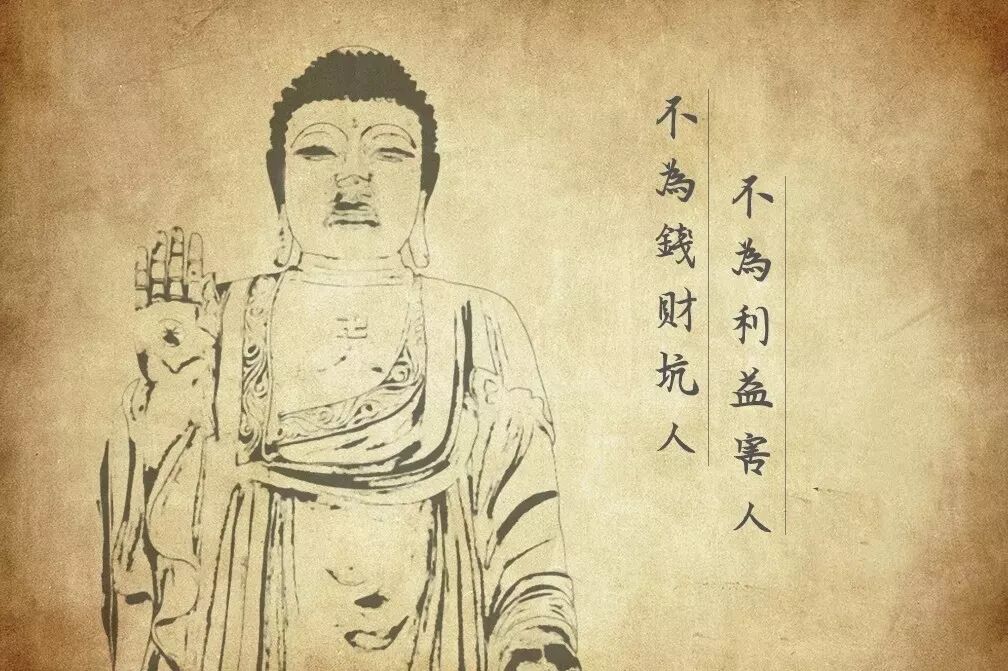 不為錢財坑人
不為利益害人
卍